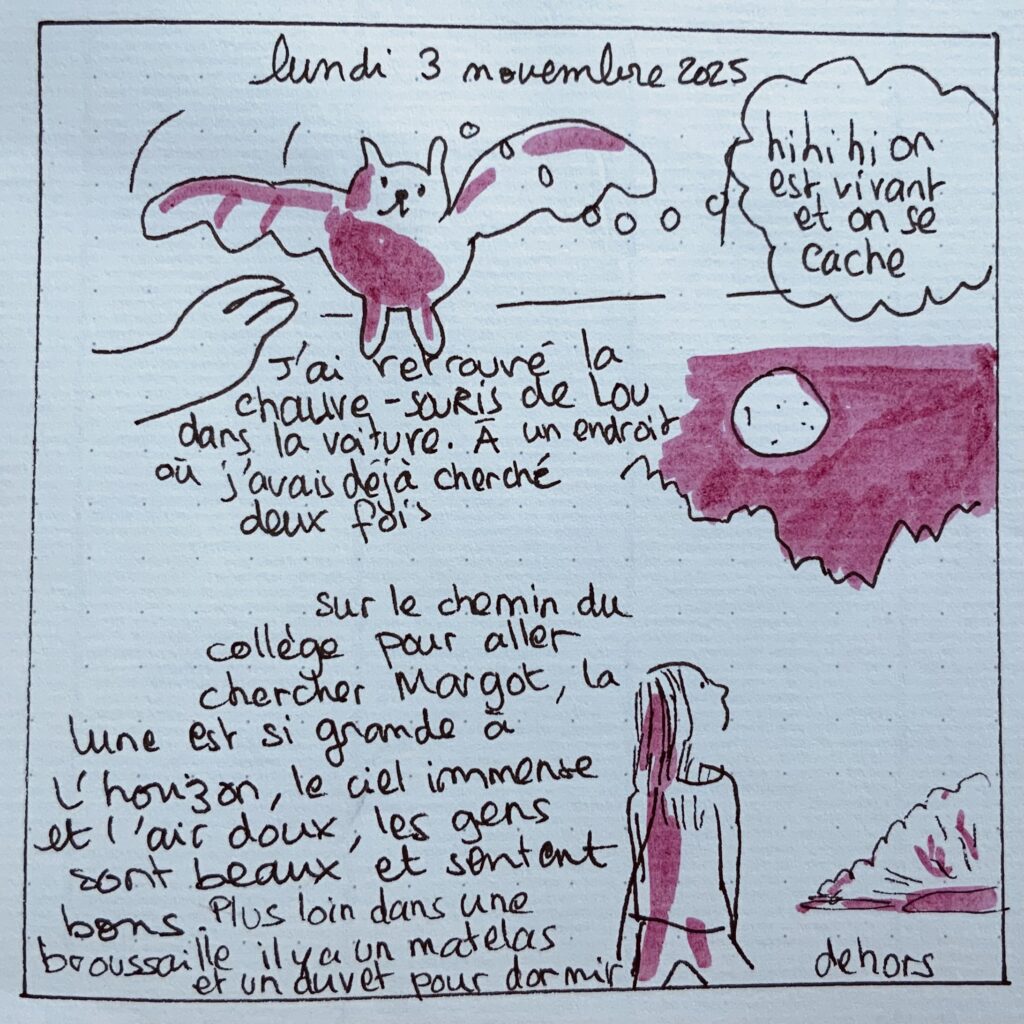 lundi 3 novembre 2025
hihihi on
est vivant
et on se
cache
J'ai retrouvé la
chauve-souris de Lou
dans la voiture. À un endroit
où j'avais déjà cherché
deux fois
sur le chemin du
collège pour aller
chercher Margot, la
lune est si grande à
l'horizon, le ciel immense
et l'air doux, les gens
sont beaux et sentent
bons. Plus loin dans une
broussaille il y a un matelas
et un duvet pour dormir
dehors